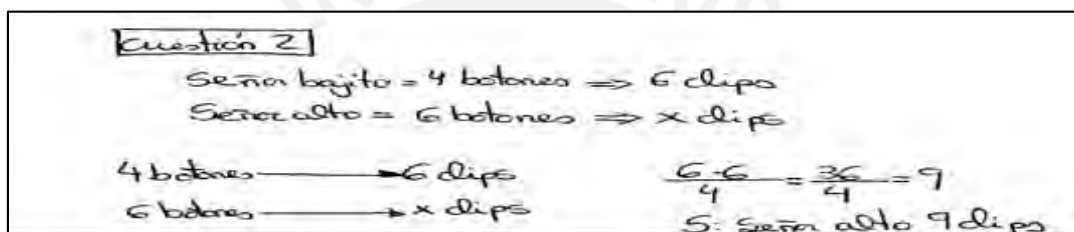 Cuestión 2
Señor bajito = 4 botones ⇒ 6 clips
Señor alto = 6 botones ⇒ x clips
4 botones → 6 clips
6 botones → x clips
6·6/4 = 36/4 = 9
S: Señor alto 9 clips